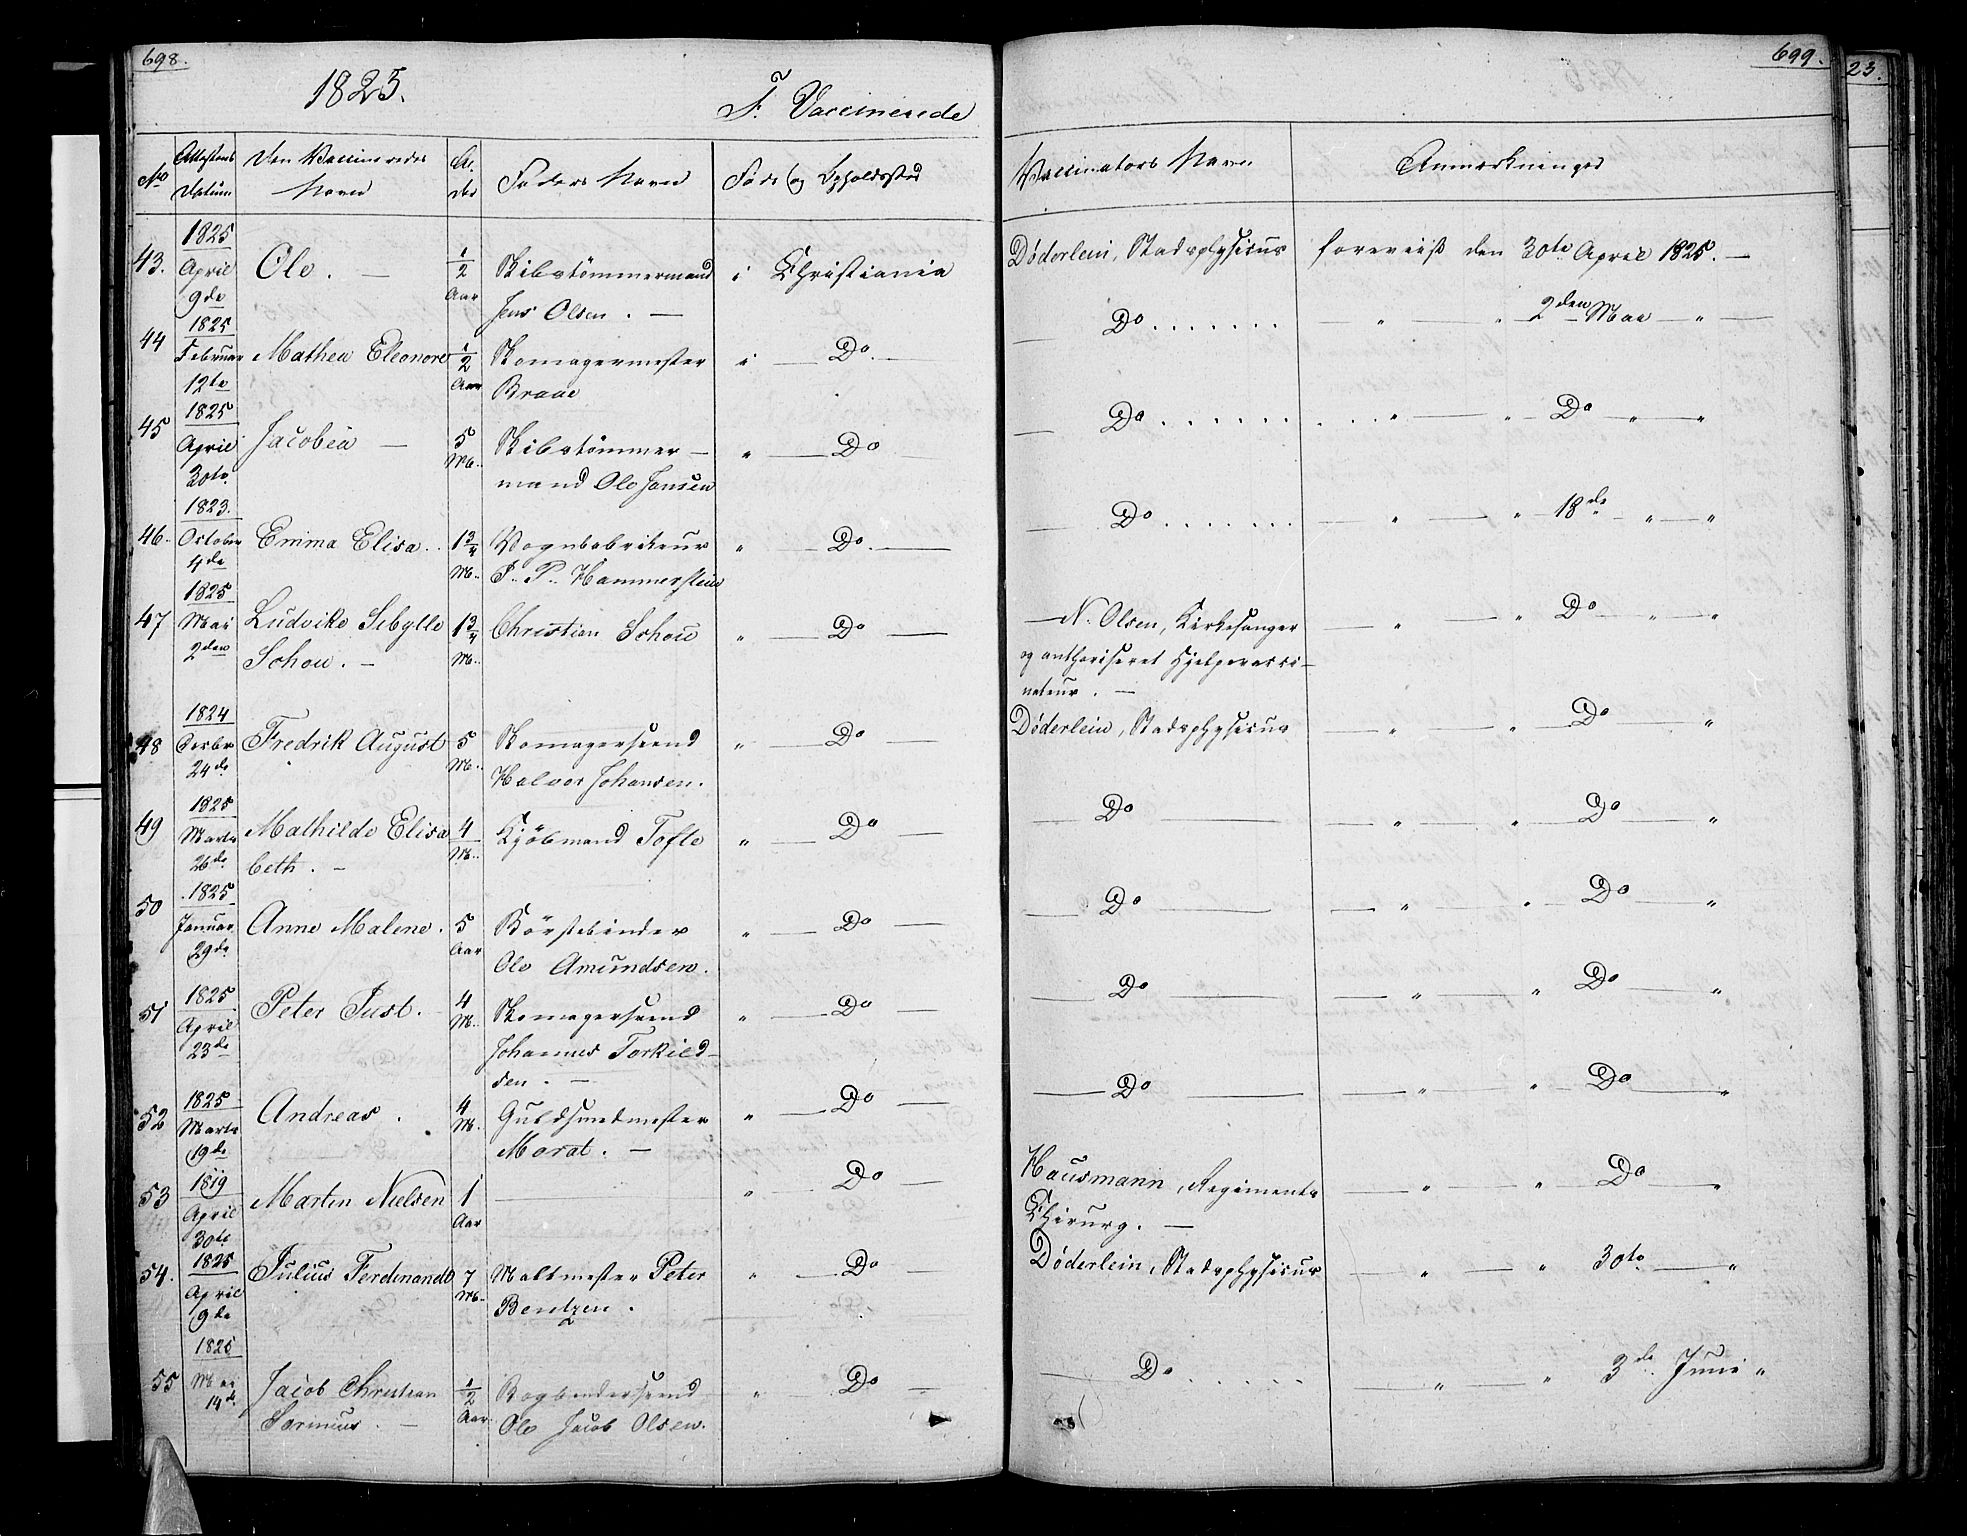 698.
1825.
F. Vaccinerede
No
Attestens Datum
Den Vaccineredes Navn
Alder
Faders Navn
Føde og Opholdssted
43. 1825 April 9de Ole. — 1/2 Aar Skibstømmermand i Christiania
Jens Olsen. —
44 1825 Februar 12te Mathea Eleonore 1/2 Aar Skomagermester i — Do. —
Braae
45 1825 April 30te. Jacobea — 5 M. Skibstømmer- „ — Do
mand Ole Jansen
46. 1823. October 4de Emma Elisa.. 1 3/4 M. Vognfabrikeur „ — Do. —
P. Hammerstein
47 1825 Mai 2den Ludvike Sibylle 1 3/4 M. Christian Schou „ — Do —
Schou. —
48 1824 Decbr 24de Fredrik August 5 M. Skomagersvend „ — Do —
Halvor Johansen.
49 1825 Marts 26de Mathilde Elisa 4 M. Kjøbmand Tofte „ — Do —
beth. —
50 1825 Januar 29de Anne Malene. 5 Aar Børstebinder „ — Do —
Ole Amundsen.
51 1825 April 23de Peter Just. — 4 M. Skomagersvend „ — Do —
Johannes Torkild-
sen. —
52 1825 Marts 19de Andreas. 4 M. Guldsmedmester „ — Do —
Morat. —
53 1819 April 30te Martin Nielsen 1 Aar — „ — Do —
54. 1825 April 9de Julius Ferdinand 7 M. Maltmester Peter „ — Do —
Bentzen.
55 1825 Mai 14de Jacob Christian 1/2 Aar Bogbindersvend „ Do —
Ole Jacob Olsen.
699.
Vaccinators Navn
Anmærkninger
Døderlein, Stadsphysicus foreviist den 30te April 1825. —
— Do....... — „ — „ 2den Mai — „ —
— Do....... „ — „ — Do „ — „
— Do....... — „ — „ 18de „ — „
— N. Olsen, Kirkesanger — „ — „ Do — „ — „
og authoriseret Hjelpevacci-
nateur. —
Døderlein, Stadsphysicus — „ — „ Do — „
— Do — — „ — „ — Do — „
— Do — — „ — „ — Do — „
— Do — — „ — „ Do — „
— Do — — „ — „ Do — „
Hausmann, Regiments — „ — „ Do — „
Chirurg. —
Døderlein, Stadsphysicus — „ — „ 30te — „
Do ..... — „ — „ 3de Juni „
23.